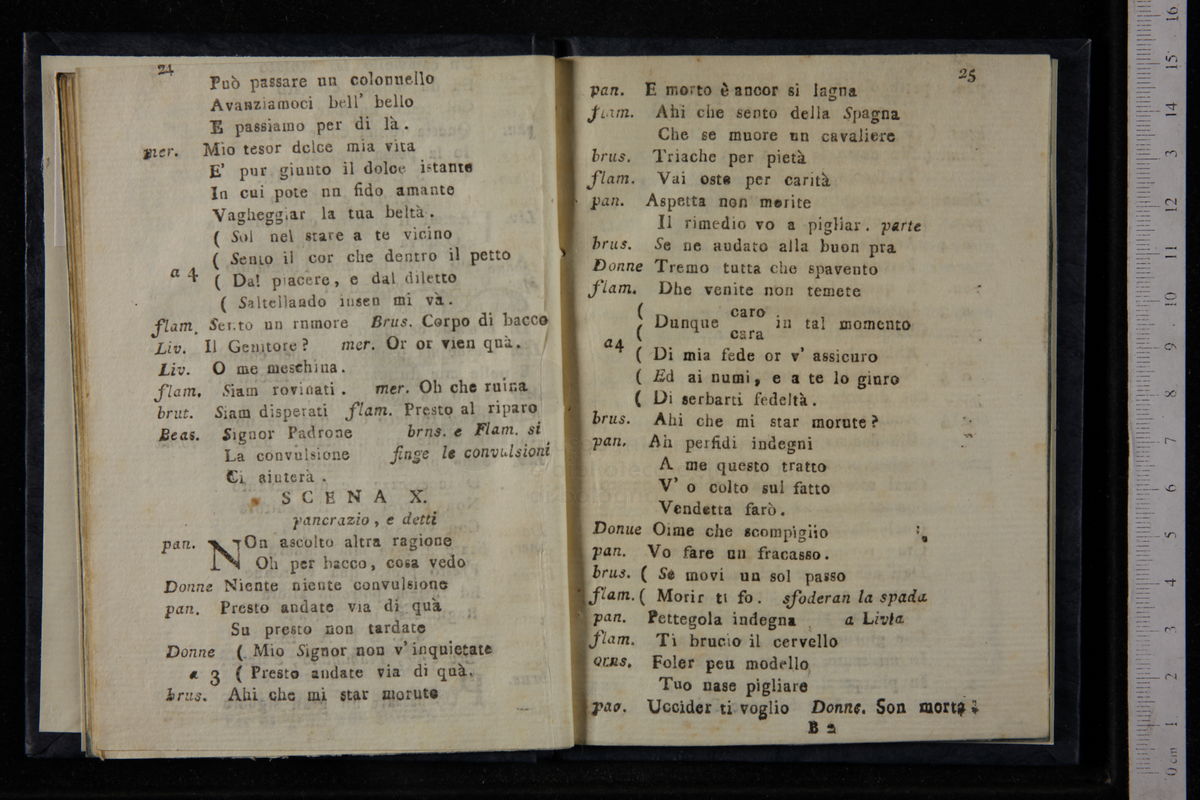 24
Può passare un colonnello
Avanziamoci bell' bello
E passiamo per di là.
mer. Mio tesor dolce mia vita
E' pur giunto il dolce istante
In cui pote nn fido amante
Vagheggiar la tua beltà.
( Sol nel stare a te vicino
( Sento il cor che dentro il petto
a 4 ( Dal piacere, e dal diletto
( Saltellando insen mi và.
flam. Sento un rnmore Brus. Corpo di bacco
Liv. Il Genitore? mer. Or or vien quà.
Liv. O me meschina.
flam. Siam rovinati. mer. Oh che ruina
brut. Siam disperati flam. Presto al riparo
Beas. Signor Padrone brns. e Flam. si
La convulsione finge le convulsioni
Ci aiuterà.
SCENA X.
pancrazio, e detti
pan. NOn ascolto altra ragione
Oh per bacco, cosa vedo
Donne Niente niente convulsione
pan. Presto andate via di quà
Su presto non tardate
Donne ( Mio Signor non v'inquietate
a 3 ( Presto andate via di quà.
brus. Ahi che mi star morute
25
pan. E morto è ancor si lagna
flam. Ahi che sento della Spagna
Che se muore un cavaliere
brus. Triache per pietà
flam. Vai oste per carità
pan. Aspetta non morite
Il rimedio vo a pigliar. parte
brus. Se ne audato alla buon pra
Donne Tremo tutta che spavento
flam. Dhe venite non temete
( Dunque caro in tal momento
( cara
a4 ( Di mia fede or v' assicuro
( Ed ai numi, e a te lo giuro
( Di serbarti fedeltà.
brus. Ahi che mi star morute?
pan. Ah perfidi indegni
A me questo tratto
V' o colto sul fatto
Vendetta farò.
Donue Oime che scompiglio
pan. Vo fare un fracasso.
brus. ( Se movi un sol passo
flam. ( Morir ti fo. sfoderan la spada
pan. Pettegola indegna a Livia
flam. Ti brucio il cervello
Foler peu modello
Tuo nase pigliare
pao. Uccider ti voglio Donne. Son morta
B 2
0 cm 1 2 3 4 5 6 7 8 9 10 11 12 13 14 15 16